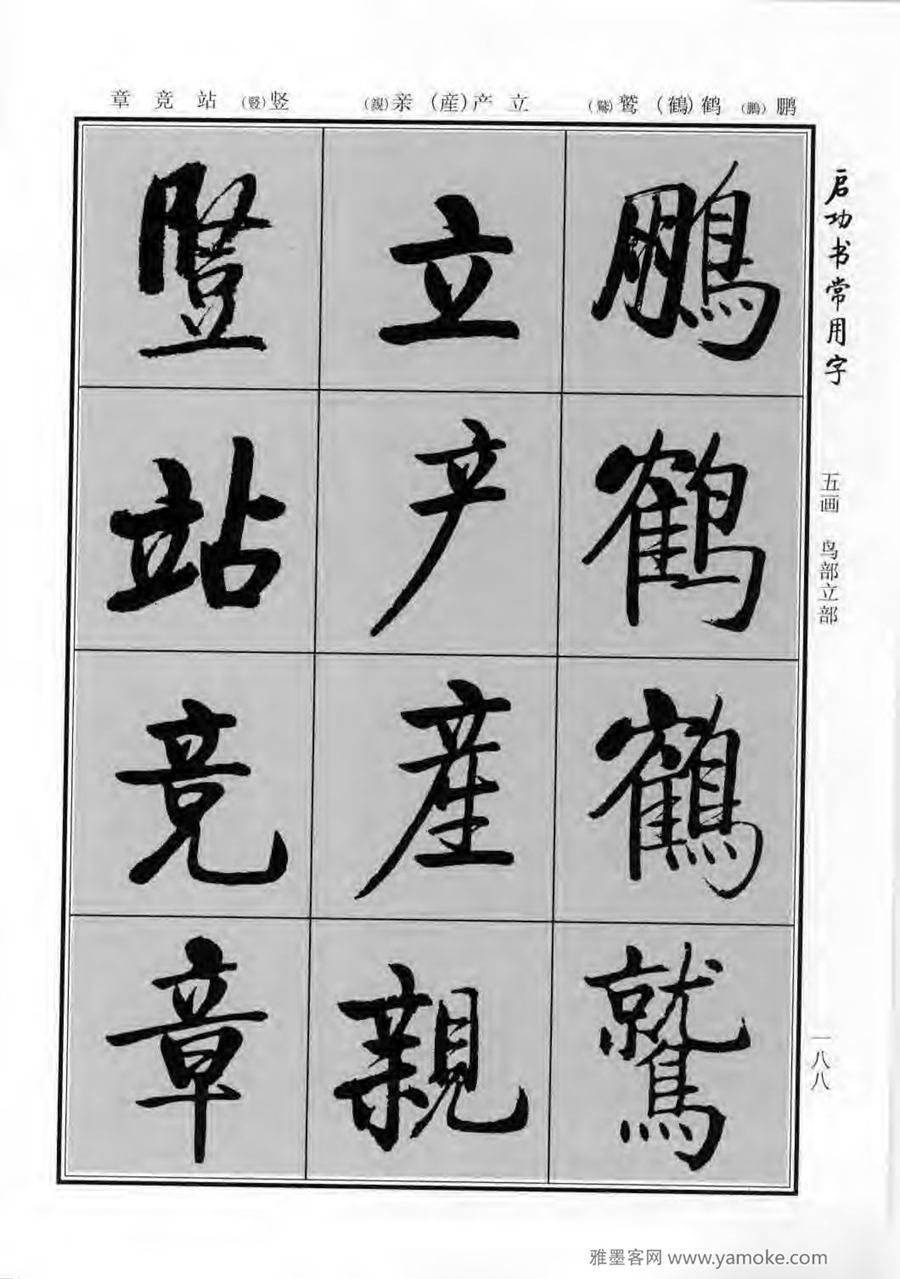 鹏(鵬)鹤(鶴)鹫(鷲)
立产(産)亲(親)
竖(豎)站竞章
启功书常用字
五画 鸟部立部
一八八
鵬
鹤
鶴
鷲
立
产
産
親
豎
站
竞
章
雅墨客网 www.yamoke.com